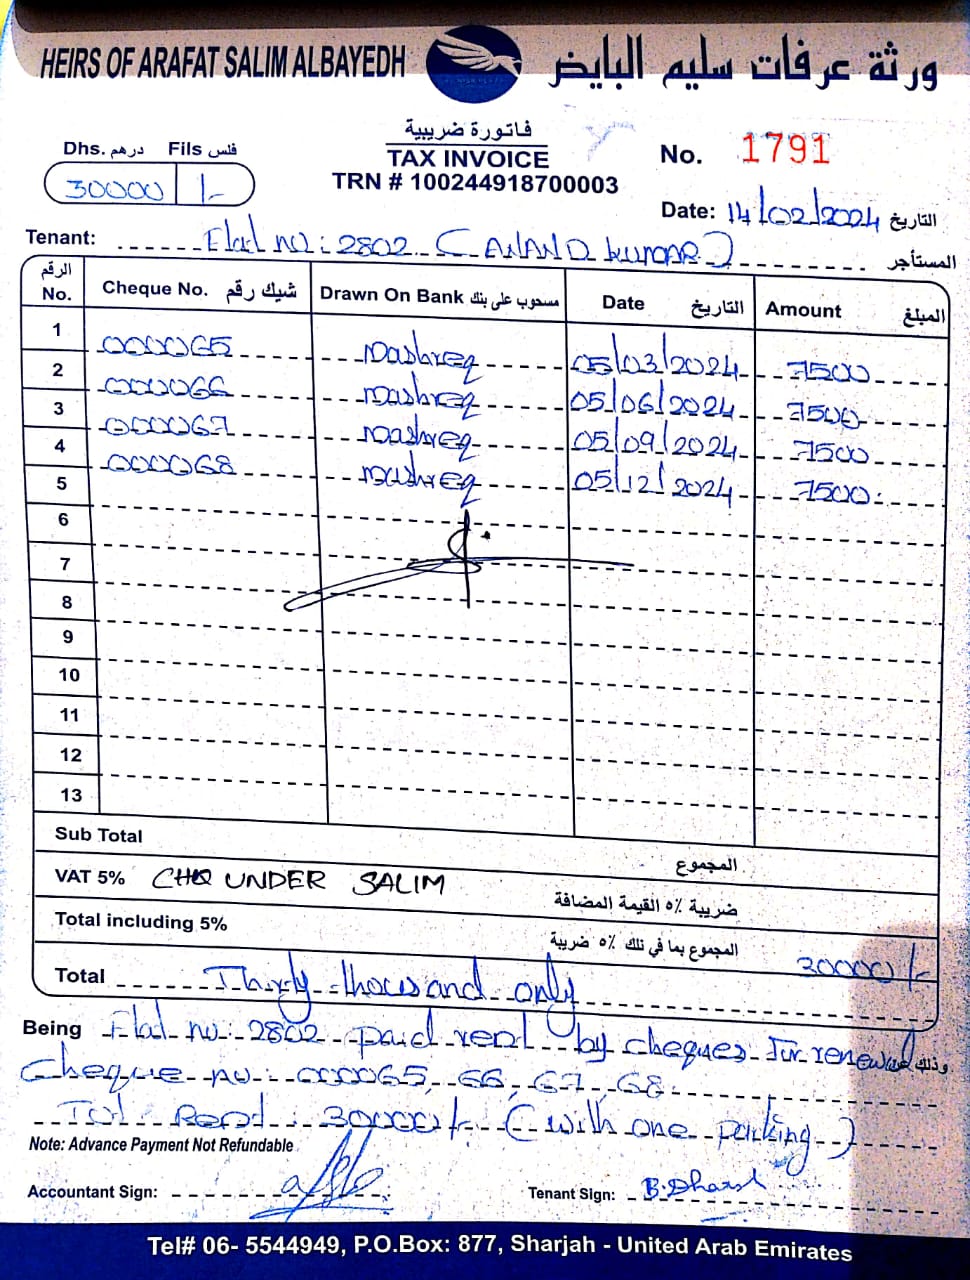 HEIRS OF ARAFAT SALIM ALBAYEDH ورثة عرفات سليم البايض
فاتورة ضريبية
TAX INVOICE
TRN # 100244918700003
Dhs. درهم Fils فلس
30000 /-
No. 1791
Date: 14/02/2024 التاريخ
Tenant: Flat no: 2802 (ANAND kumar) المستأجر
الرقم No. Cheque No. شيك رقم Drawn On Bank مسحوب على بنك Date التاريخ Amount المبلغ
1 000065 Mashreq 05/03/2024 7500
2 000066 Mashreq 05/06/2024 7500
3 000067 Mashreq 05/09/2024 7500
4 000068 Mashreq 05/12/2024 7500
5
6
7
8
9
10
11
12
13
Sub Total المجموع
VAT 5% CHQ UNDER SALIM ضريبة ٥% القيمة المضافة
Total including 5% المجموع بما في ذلك ٥% ضريبة 30000/-
Total Thirty thousand only
Being Flat no: 2802 paid rent by cheques for renewal وذلك
Cheque no: 000065, 66, 67, 68.
Tot Rent: 30000/- (with one parking)
Note: Advance Payment Not Refundable
Accountant Sign: Tenant Sign:
Tel# 06- 5544949, P.O.Box: 877, Sharjah - United Arab Emirates